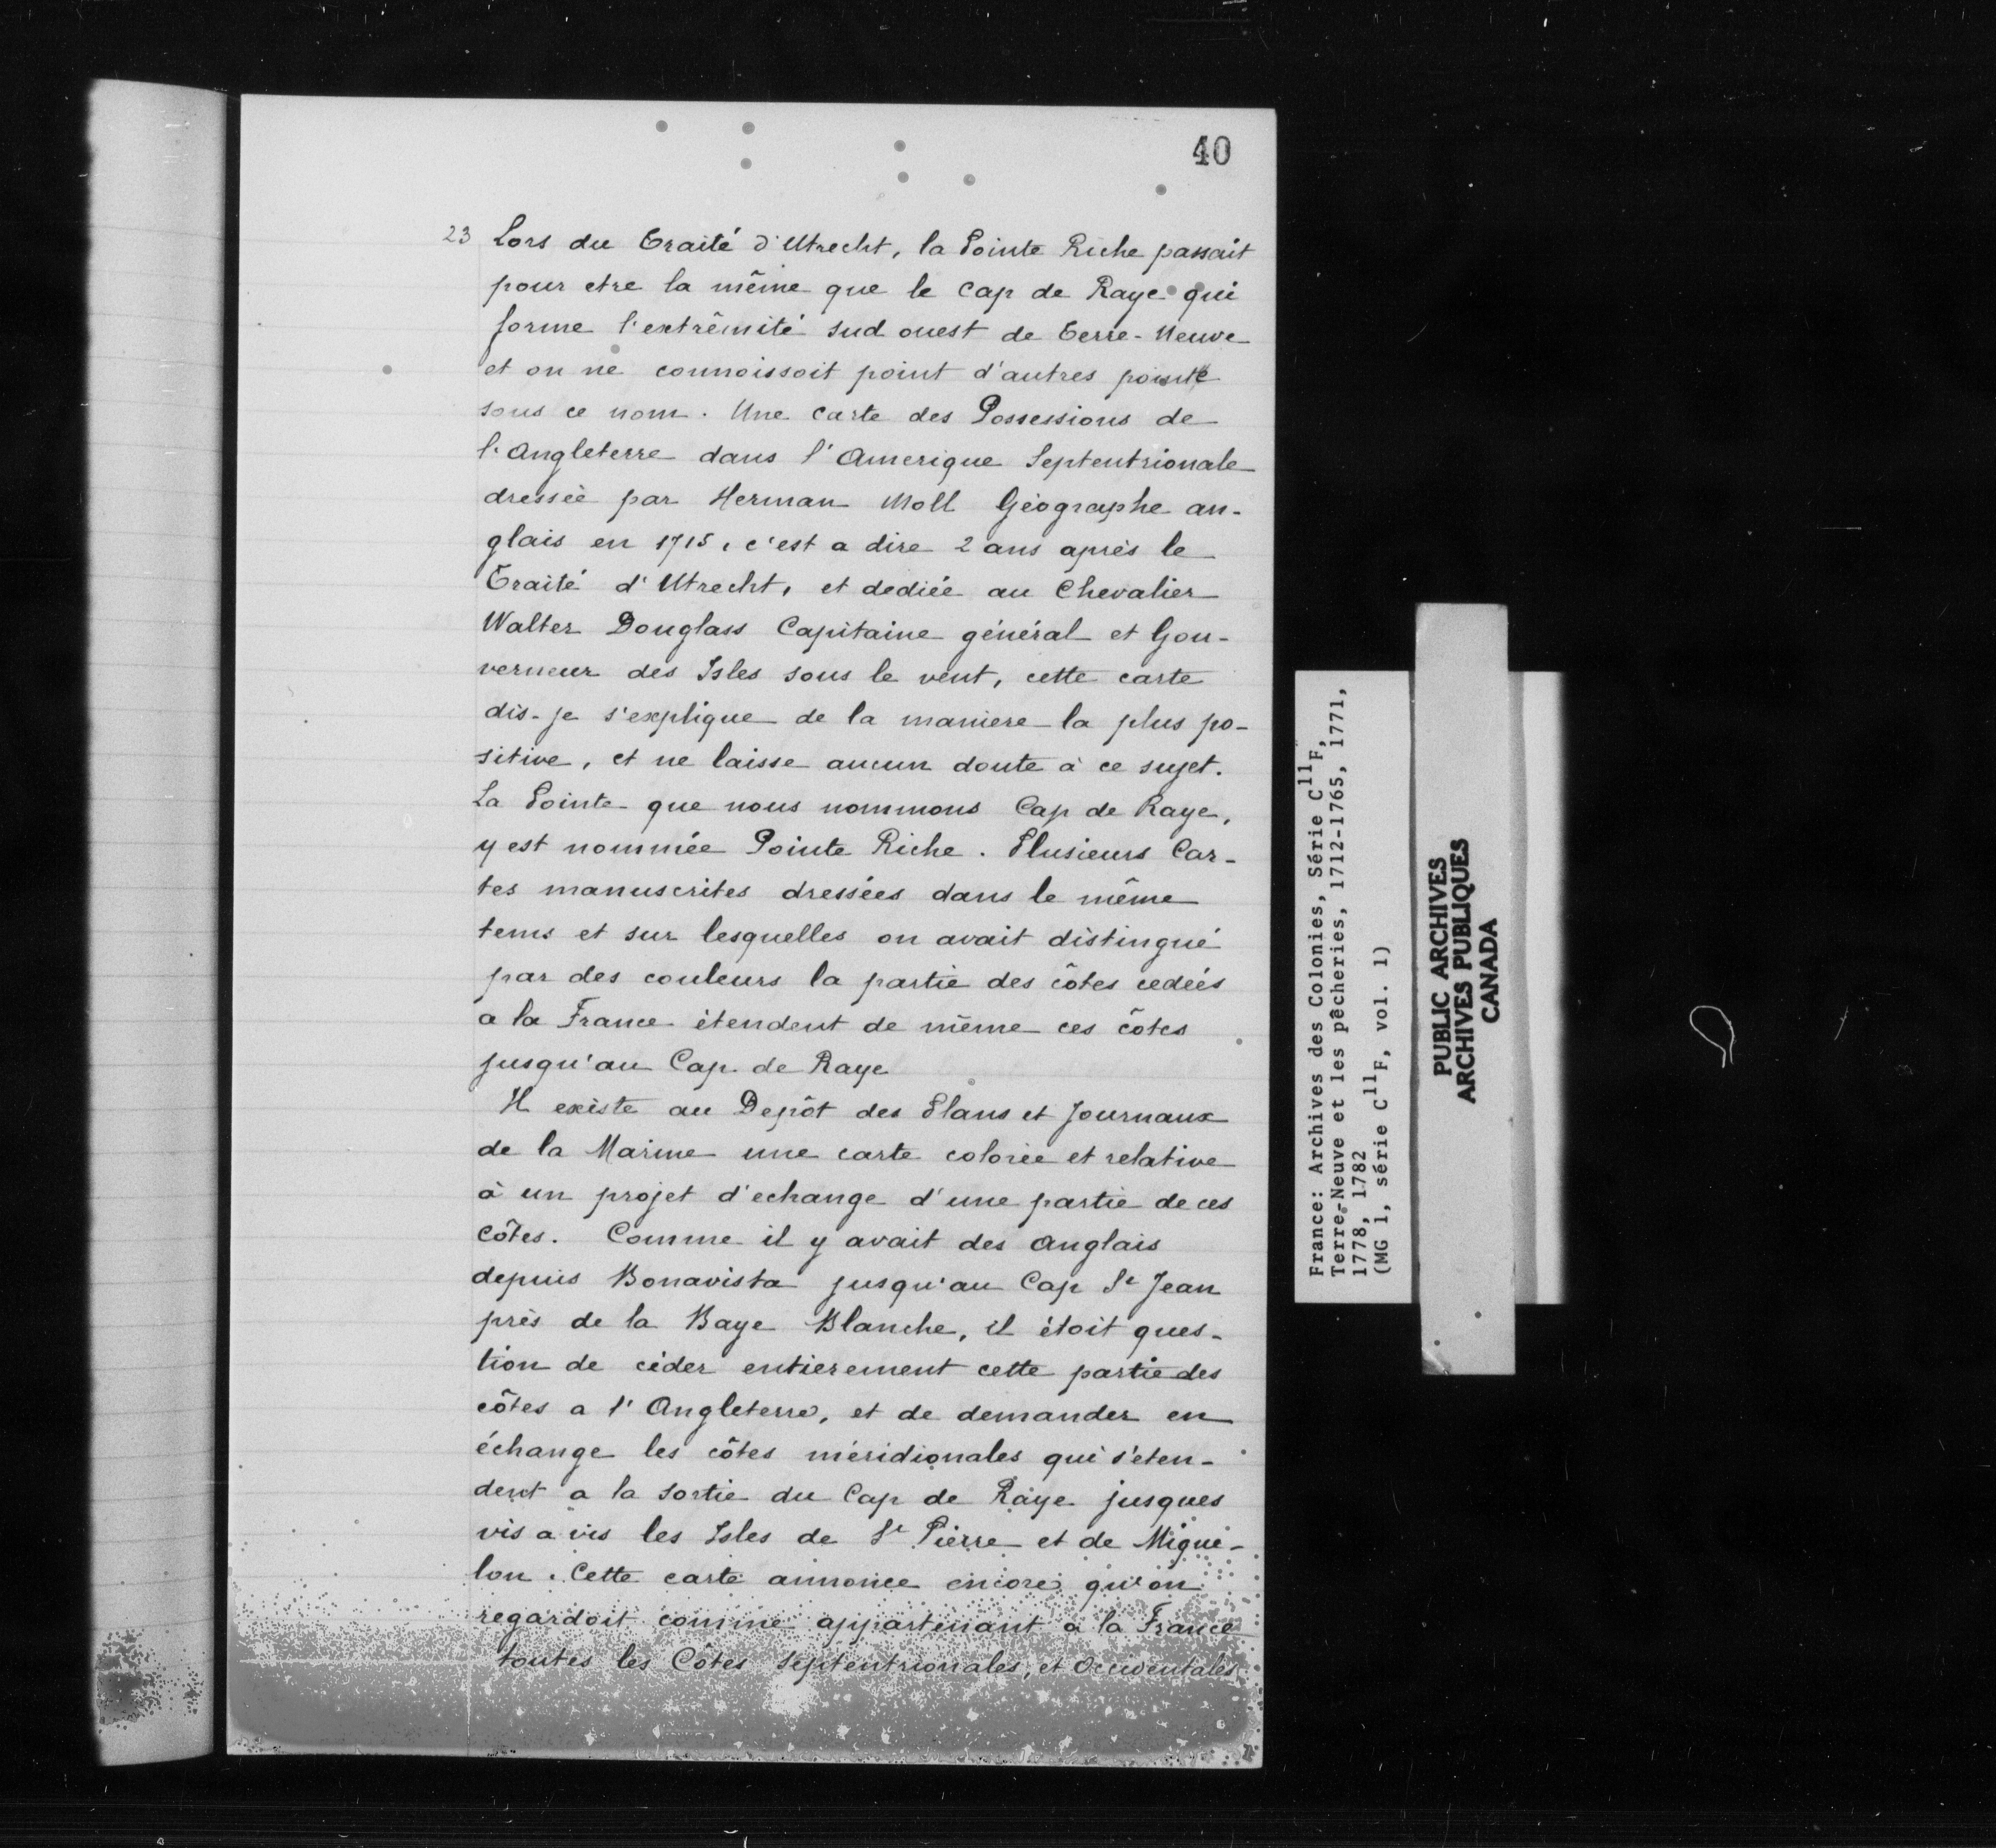 40
23 Lors du Traité d'Utrecht, la Pointe Riche passait
pour etre la même que le Cap de Raye qui
forme l'extrêmité sud ouest de Terre-Neuve
et on ne connoissoit point d'autres pointe
sous ce nom. Une carte des Possessions de
l'Angleterre dans l'Amerique Septentrionale
dressée par Herman Moll Géographe an-
glais en 1715, c'est a dire 2 ans après le
Traité d'Utrecht, et dediée au Chevalier
Walter Douglass Capitaine général et Gou-
verneur des Isles sous le vent, cette carte
dis-je s'explique de la maniere la plus po-
sitive, et ne laisse aucun doute à ce sujet.
La Pointe que nous nommons Cap de Raye,
y est nommée Pointe Riche. Plusieurs Car-
tes manuscrites dressées dans le même
tems et sur lesquelles on avait distingué
par des couleurs la partie des côtes cedées
a la France étendent de même ces côtes
jusqu'au Cap de Raye
Il existe au Depôt des Plans et Journaux
de la Marine une carte colorée et relative
à un projet d'echange d'une partie de ces
Côtes. Comme il y avait des Anglais
depuis Bonavista jusqu'au Cap St Jean
près de la Baye Blanche, il étoit ques-
tion de céder entierement cette partie des
côtes a l'Angleterre, et de demander en
échange les côtes méridionales qui s'éten-
dent a la sortie du Cap de Raye jusques
vis a vis les Isles de St Pierre et de Mique-
lon. Cette carte annonce encore qu'on
regardoit comme appartenant à la France
toutes les Côtes Septentrionales, et Occidentales
France: Archives des Colonies, Série C11F,
Terre-Neuve et les pêcheries, 1712-1765, 1771,
1778, 1782
(MG 1, série C11F, vol. 1)
PUBLIC ARCHIVES
ARCHIVES PUBLIQUES
CANADA